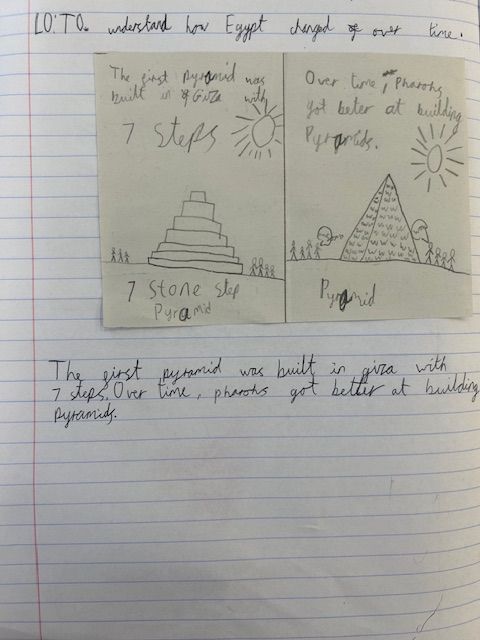 LO: To. understand how Egypt changed over time.
The first pyramid was
built in Giza with
7 Steps
7 Stone Step
Pyramid
Over time, Pharohs
got beter at building
Pyramids.
Pyramid
The first pyramid was built in giza with
7 steps. Over time, pharohs got better at building
pyramids.